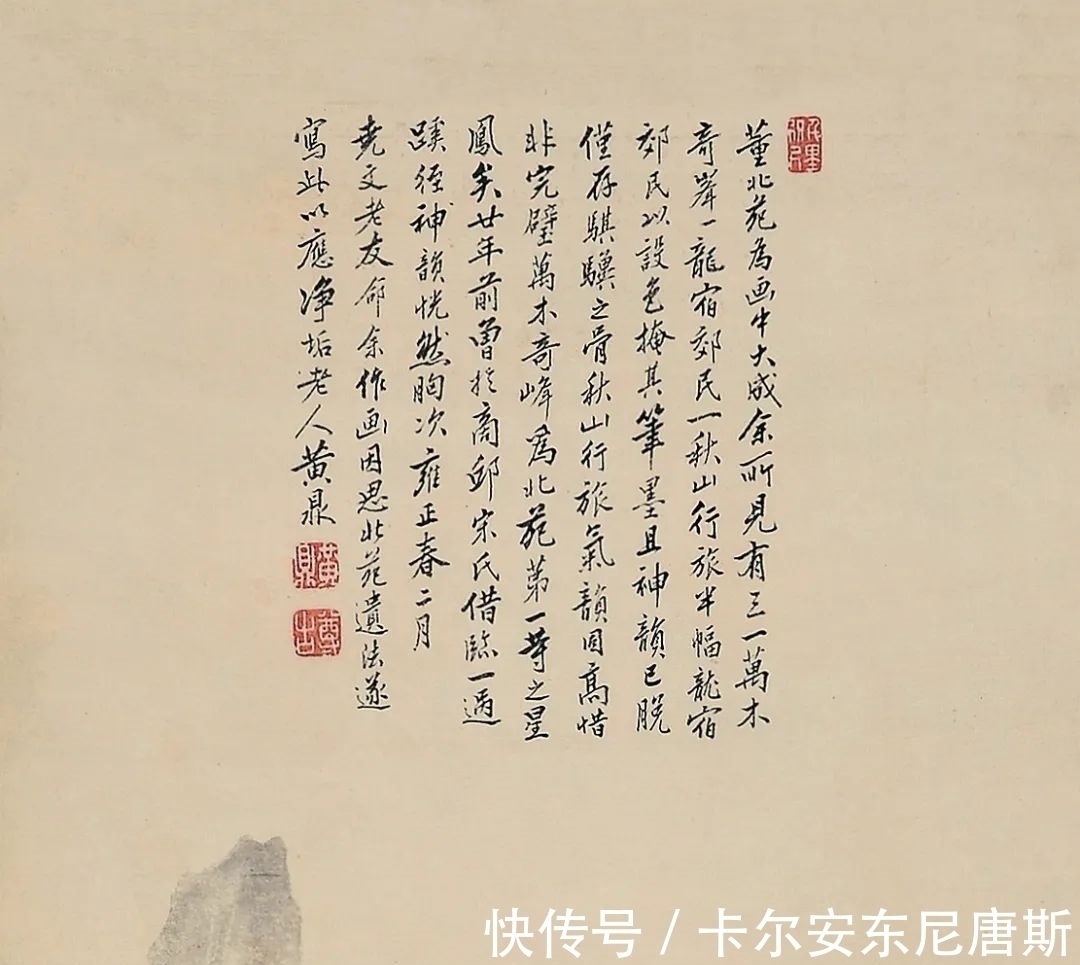 董北苑為画中大成余所見有三一萬木
奇峯一龍宿郊民一秋山行旅半幅龍宿
郊民以設色掩其筆墨且神韻已脫
僅存騏驥之骨秋山行旅氣韻固高惜
非完璧萬木奇峰為北苑第一等之星
鳳矣廿年前曽於商邱宋氏借臨一過
蹊徑神韻恍然胸次雍正春二月
堯文老友命余作画因思北苑遺法遂
寫此以應净垢老人黄鼎
黄鼎
尊古
快传号/卡尔安东尼唐斯